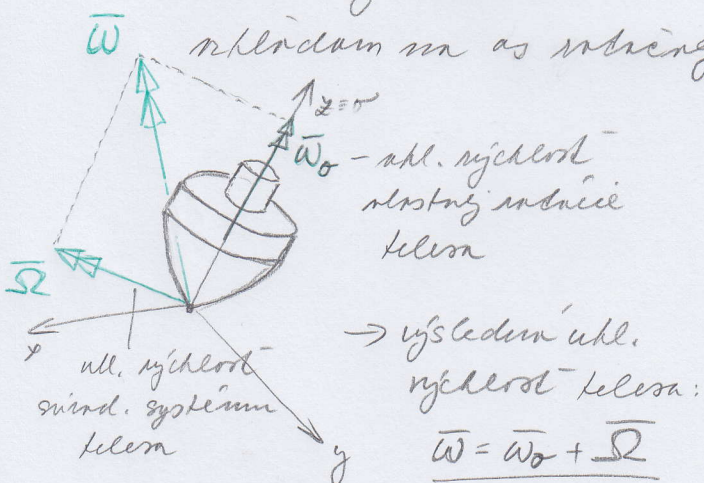 ω̄
vzhľadom na os rotačnej
z≡σ
ω̄σ - uhl. rýchlosť
vlastnej rotácie
telesa
Ω̄
x
uhl. rýchlosť
súrad. systému
telesa
y
→ výsledná uhl.
rýchlosť telesa:
ω̄ = ω̄σ + Ω̄